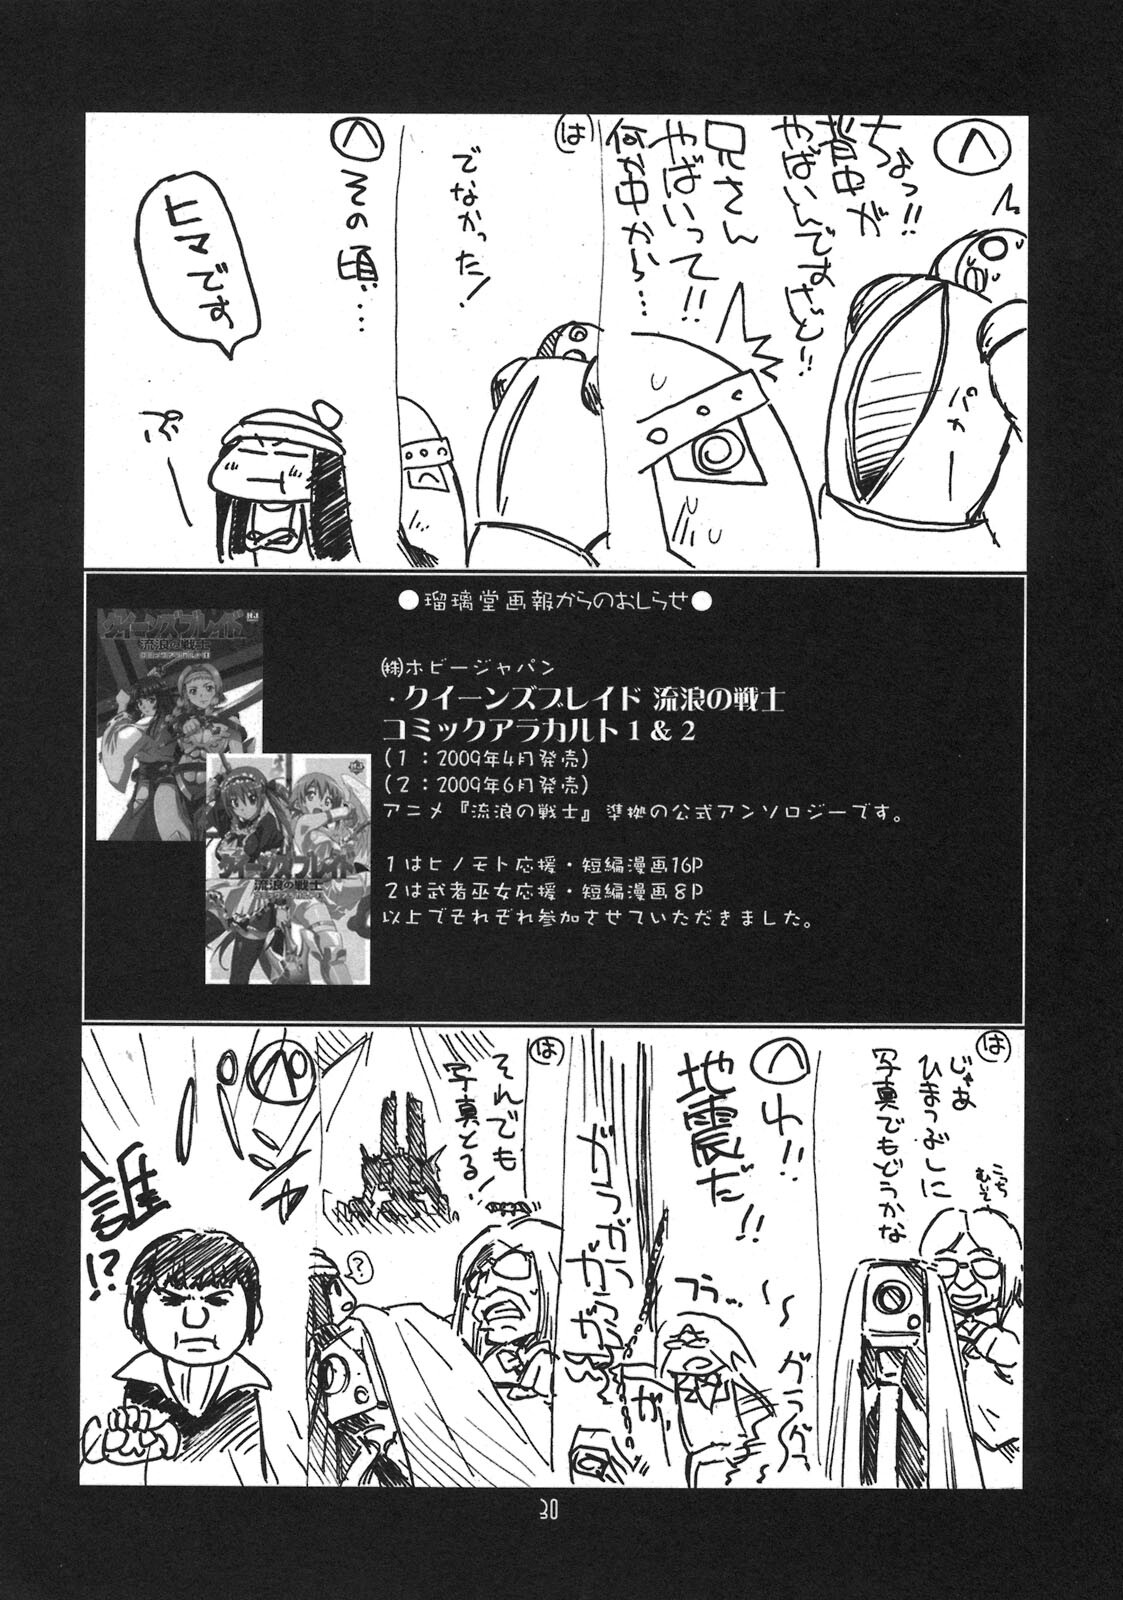 へ
ちょっ!!
背中が
やばいんですけど!!
パカー
兄さん
やばいって!!
何か中から…
は
でなかった!
へ
その頃…
ヒマです
ぷー
●瑠璃堂画報からのおしらせ●
㈱ホビージャパン
・クイーンズブレイド 流浪の戦士
コミックアラカルト1&2
(1:2009年4月発売)
(2:2009年6月発売)
アニメ『流浪の戦士』準拠の公式アンソロジーです。
1はヒノモト応援・短編漫画16P
2は武者巫女応援・短編漫画8P
以上でそれぞれ参加させていただきました。
クイーンズブレイド
流浪の戦士
クイーンズブレイド
流浪の戦士
は
じゃあ
ひまつぶしに
写真でもどうかな
こっち
むいて
へ
わ!!
地震だ!!
グラグラっ
フラ…
は
それでも
写真とる!
?
ペ
誰!?
30